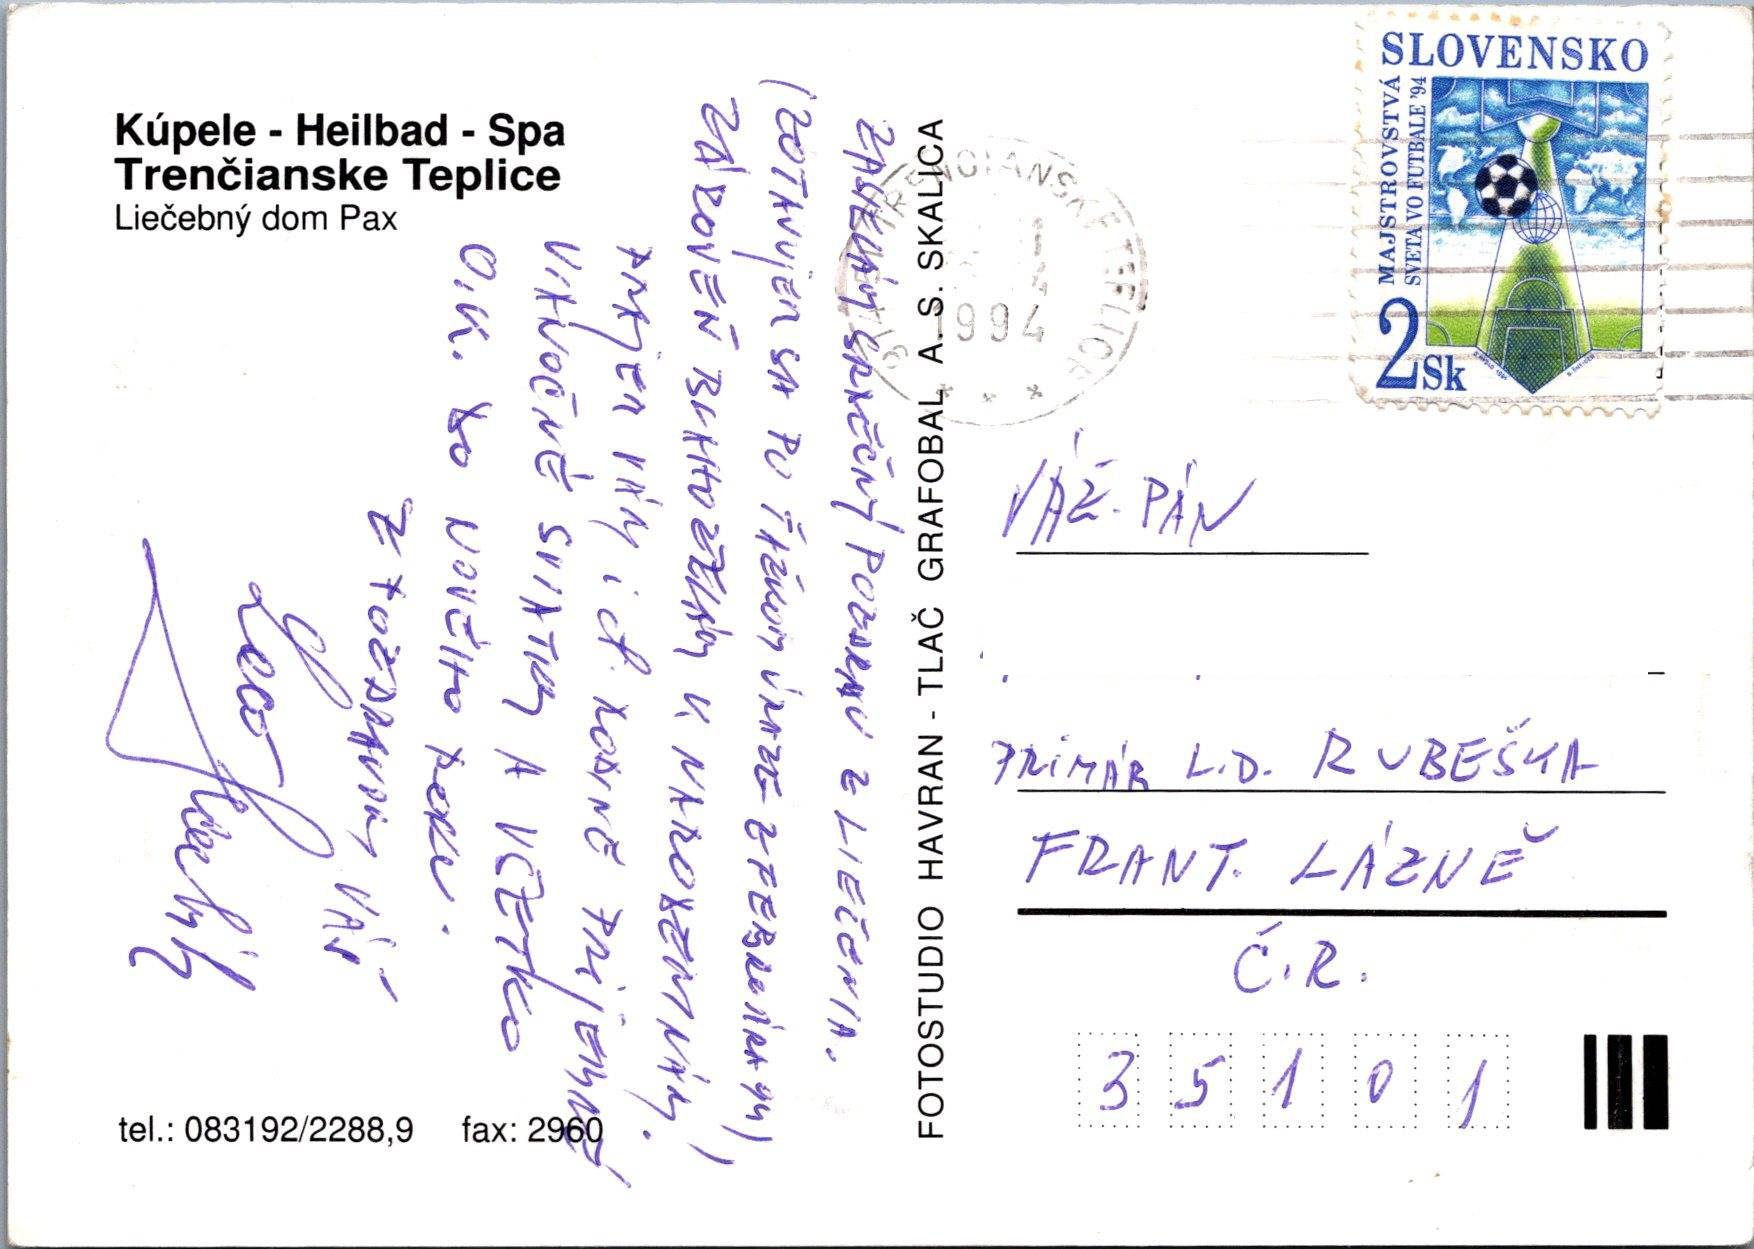 Kúpele - Heilbad - Spa
Trenčianske Teplice
Liečebný dom Pax
ZASIELAM SRDEČNÝ POZDRAV Z LIEČENIA.
(ZOTAVUJEM SA PO ŤAŽKOM ÚRAZE Z FEBRUÁRA 94)
ZÁROVEŇ BLAHOŽELÁM K NARODENINÁM.
PRAJEM VÁM i ct. RODINE PRÍJEMNÉ
VIANOČNÉ SVIATKY A VŠETKO
O.K. DO NOVÉHO ROKU.
Z POZDRAVOM VÁŠ
tel.: 083192/2288,9 fax: 2960
FOTOSTUDIO HAVRAN - TLAČ GRAFOBAL, A. S. SKALICA
TRENČIANSKE TEPLICE
1994
SLOVENSKO
MAJSTROVSTVÁ
SVETA VO FUTBALE '94
2 Sk
VÁŽ. PÁN
PRIMÁR L.D. RUBEŠKA
FRANT. LÁZNĚ
Č.R.
3 5 1 0 1